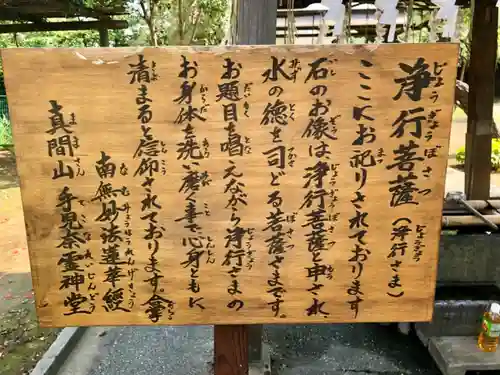 浄行菩薩（浄行さま）
ここにお祀りされております
石のお像は、浄行菩薩と申され
水の徳を司どる菩薩さまです。
お題目を唱えながら浄行さまの
お身体を洗い磨く事で、心身ともに
清まると信仰されております。合掌
南無妙法蓮華經
真間山 手児奈霊神堂